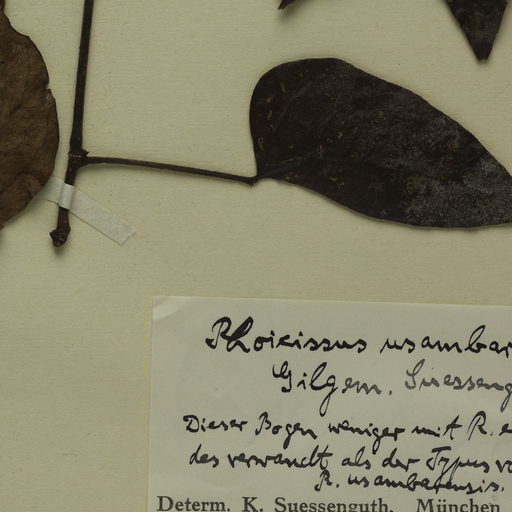 Rhoicissus usambar
Gilg em. Suesseng
Dieser Bogen weniger mit R. e
des verwandt als der Typus vo
R. usambarensis.
Determ. K. Suessenguth, München